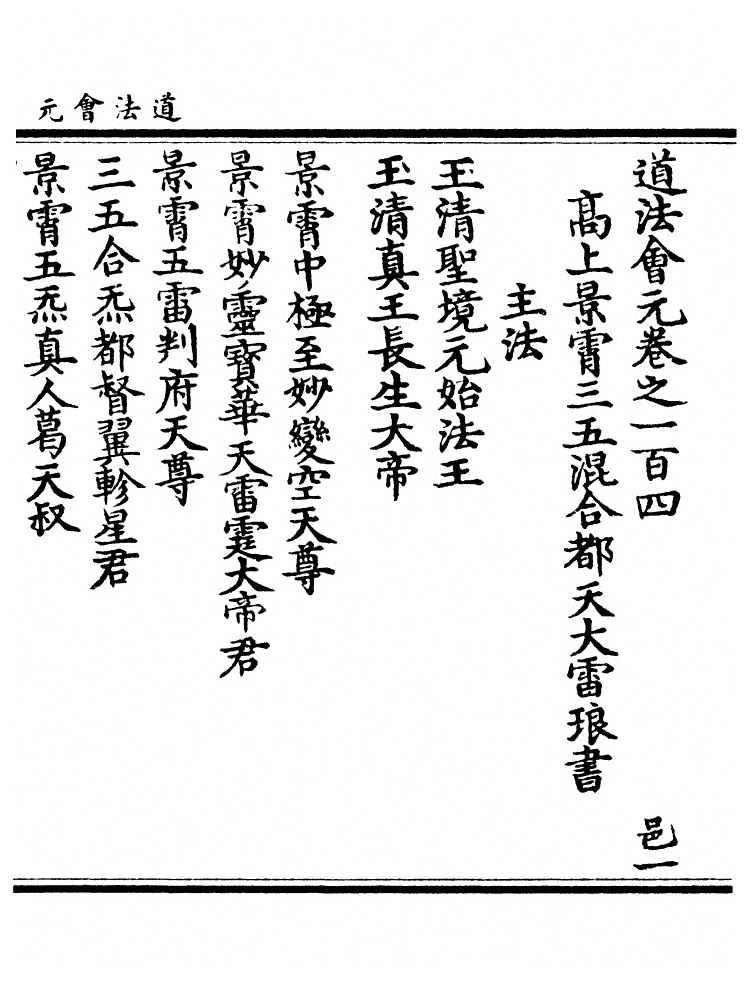 道法會元
道法會元卷之一百四 邑一
高上景霄三五混合都天大雷琅書
主法
玉清聖境元始法王
玉清真王長生大帝
景霄中極至妙變空天尊
景霄妙靈寶華天雷霆大帝君
景霄五雷判府天尊
三五合炁都督翼軫星君
景霄五炁真人葛天叔